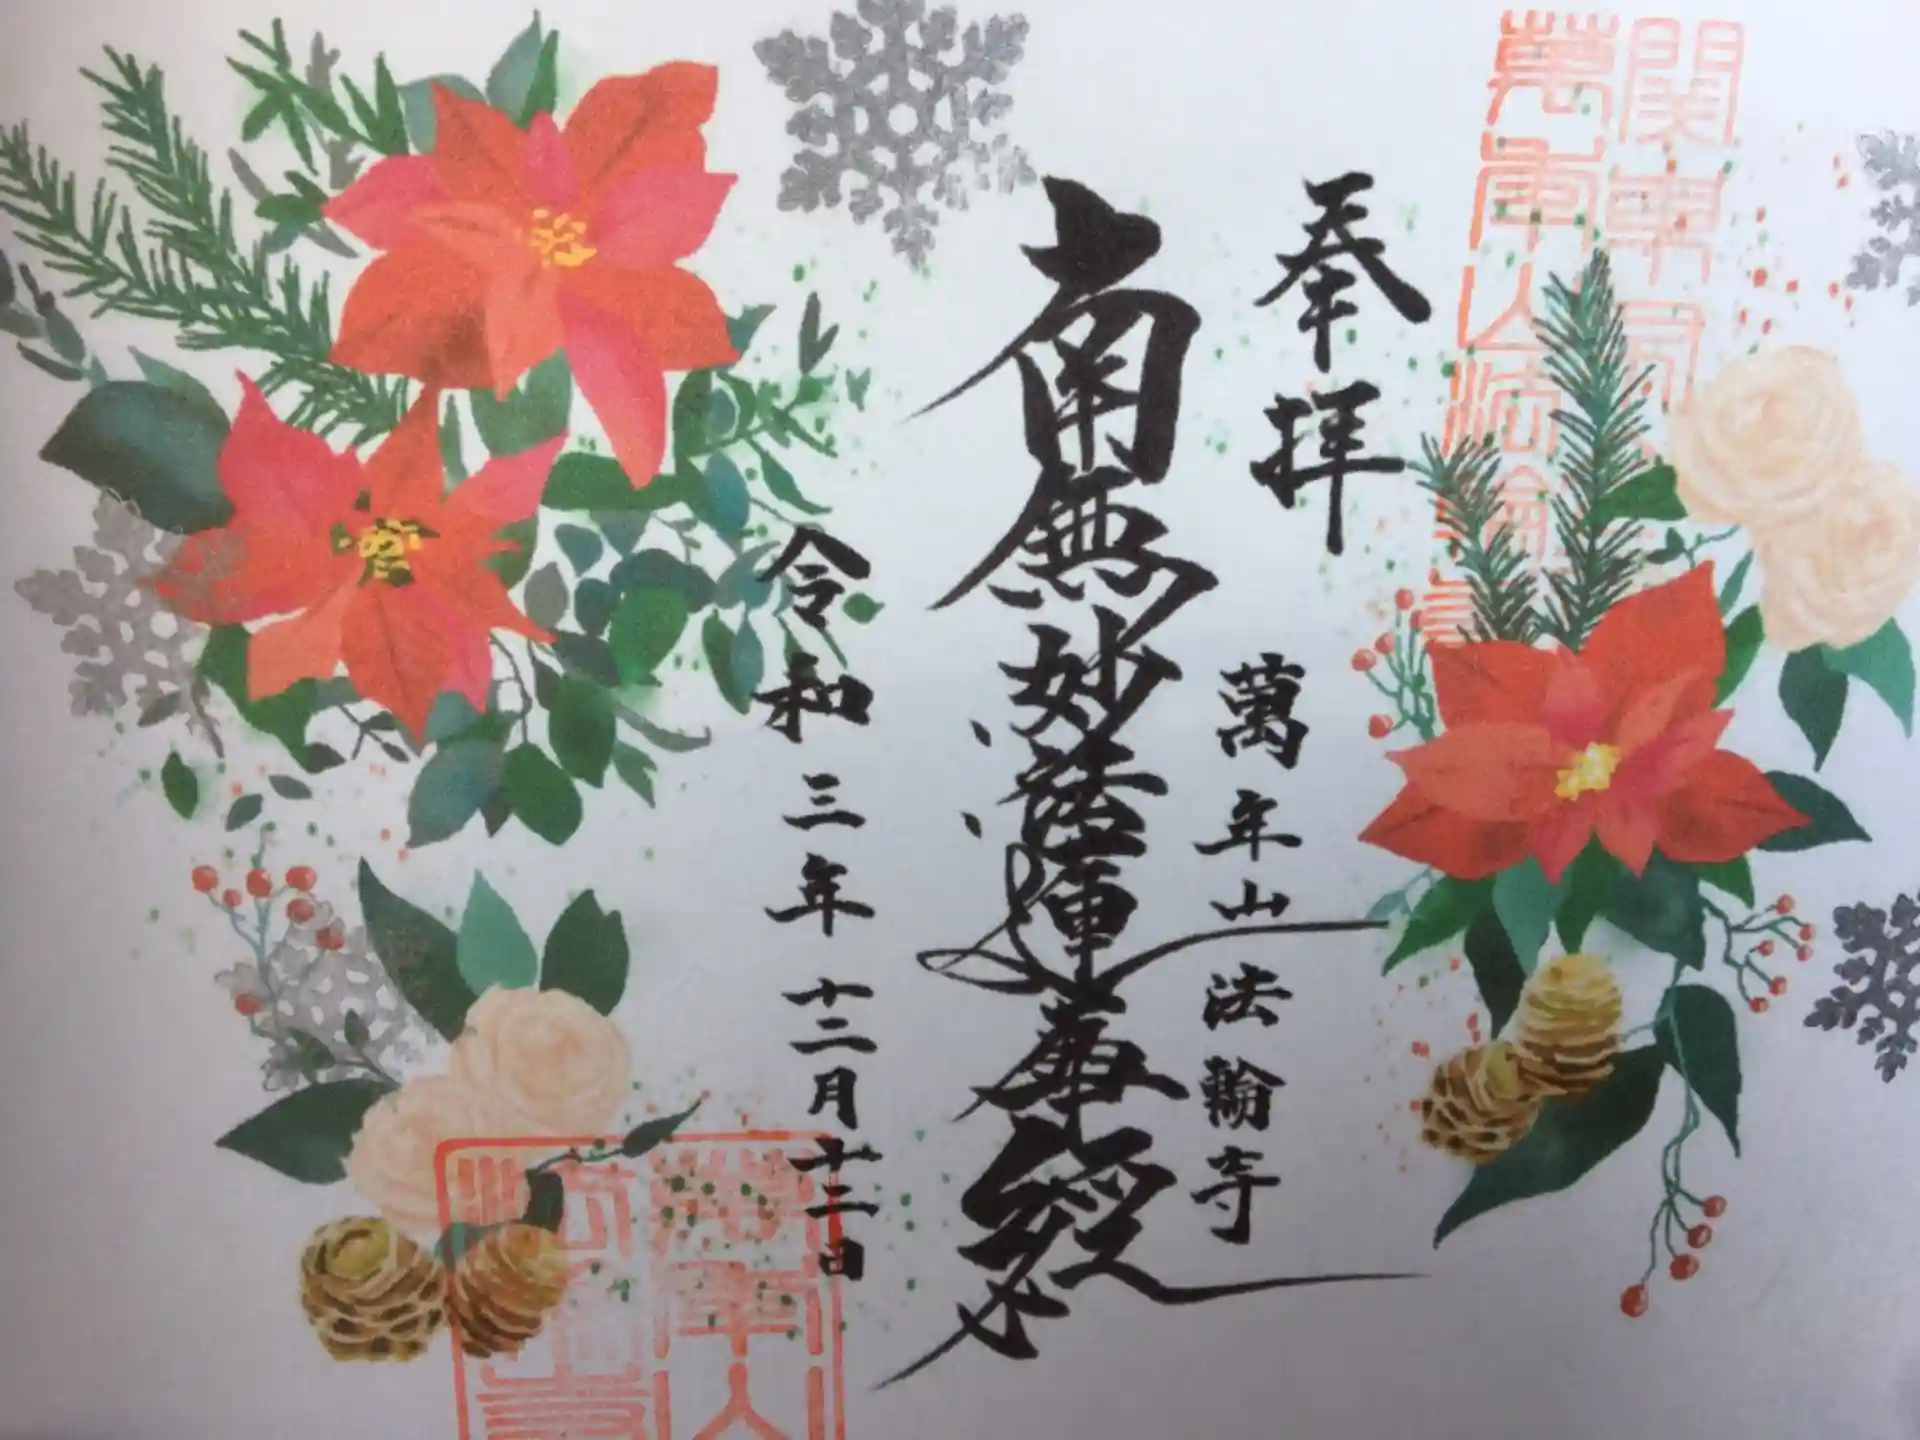 奉拝
萬年山法輪寺
南無妙法蓮華経
令和三年十二月十二日